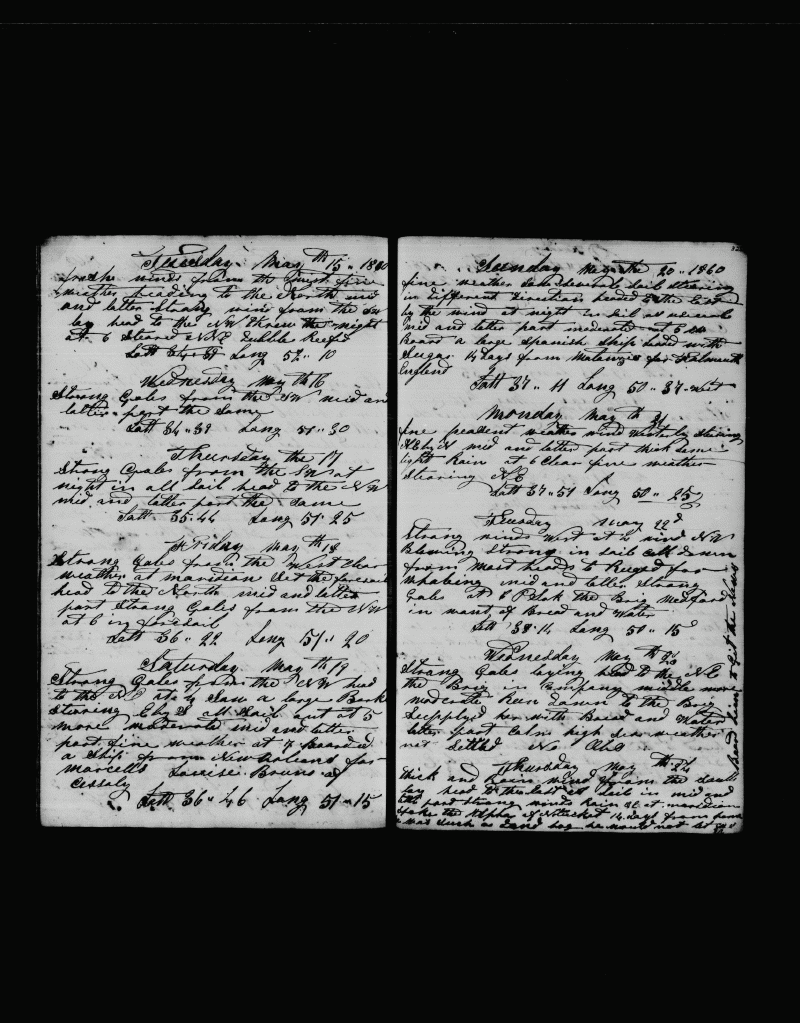 Tuesday May th 15 " 1860
fresh winds from the
weather heading to the North mid
and latter Strong wind from the SW
lay head to the NW threw the night
at 6 Steared NNE Dubble Reefed
Latt 34 " 38 Long 52 " 10
Wednesday May th 16
Strong Gales from the SW mid and
latter part the same
Latt 34 " 39 Long 51 " 30
Thursday the 17
Strong Gales from the SW at
night in all sail head to the NW
mid and latter part the same
Latt 35 " 44 Long 51 " 25
Friday May th 18
Strong Gales from the West Clear
weather at maridian Set the foresail
head to the North mid and latter
part Strong Gales from the NW
at 6 in foresail
Latt 36 " 22 Long 51 " 20
Saturday May th 19
Strong Gales from the NW head
to the NE at Saw a large Bark
Stearing E by S all Sail out at 5
more moderate mid and latter
part fine weather at 7 boarded
a Ship from New Orleans for
Marcells Louise Bruns of
Latt 36 " 46 Long 51 " 15
Sunday May the 20 " 1860
fine weather Saw Severale Sail Stearing
in different Directions headed to the East
by the wind at night in Sail as
mid and latter part moderate at 5
Board a large Spanish Ship head with
Sugar 14 Days from Matanzis for Falmouth
England
Latt 37 " 11 Long 50 " 37 West
Monday May th 21
fine weather wind Westerly Stearing
NE by N mid and latter part thick some
light Rain at 6 Clear fine weather
Stearing NE
Latt 37 " 51 Long 50 " 25
Tuesday May 22d
Strong winds West at 2 wind NW
Blowing Strong in Sail
from Mast heads to Rigged for
Whaleing mid and latter Strong
Gales at 6 Spok the Brig Medford
in want of Bread and Water
Latt 38 " 14 Long 50 " 15
Wednesday May th 23
Strong Gales laying head to the NE
the Brig in Company middle more
moderate Run Down to the Brig
Supplyed her with Bread and Water
latter part Calm high Sea weather
not Settled No Obs
Thursday May th 24
thick and Rain wind from the South
lay head to the East all Sail in mid and
latter part Strong winds Rain at maridian
Spoke the Alpha of Nantucket 14 Days from home
he would not
to Git the News